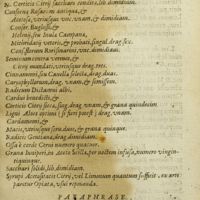 N. Corticis Citrij saccharo conditi, lib. dimidiam.
Conserua Rosarum antiqua, &
Acetosa, vtriusque vnc. vnam, & dimidiam.
Conser. Buglossi, &
Helenij, seu Inula Campana,
Mithridatij veteris, & probati, singul. drag. sex.
Conserarum Rorismarini, vnc. dimidiam.
Seminum contra vermes, &
Citrij mundati, vtriusque drag. tres.
Cinnamomi, seu Canella selecta, drag. duas.
Caryophyllorum, drag. vnam, & semissem.
Radicum Dictamni albi.
Cardui benedicti, &
Corticis Citrij sicca, drag. vnam, & grana quindecim.
Ligni Aloes optimi (si furi potest) drag. vnam.
Cardamomi, &
Macis, vtriusque scru. duos, & grana quindecim.
Radicis Gentiana, drag. dimidiam.
Ossa è corde Cerui numero quatuor.
Grana Iuniperi, in Aceto Scilla, per noctem infusa, numero viginti-
quinque.
Sacchari solidi, lib. dimidiam.
Syrupi Acetositatis Citri, vel Limonum quantum sufficit, ex arte
paretur Opiata, vsui reponenda.
PARAPHRASE.